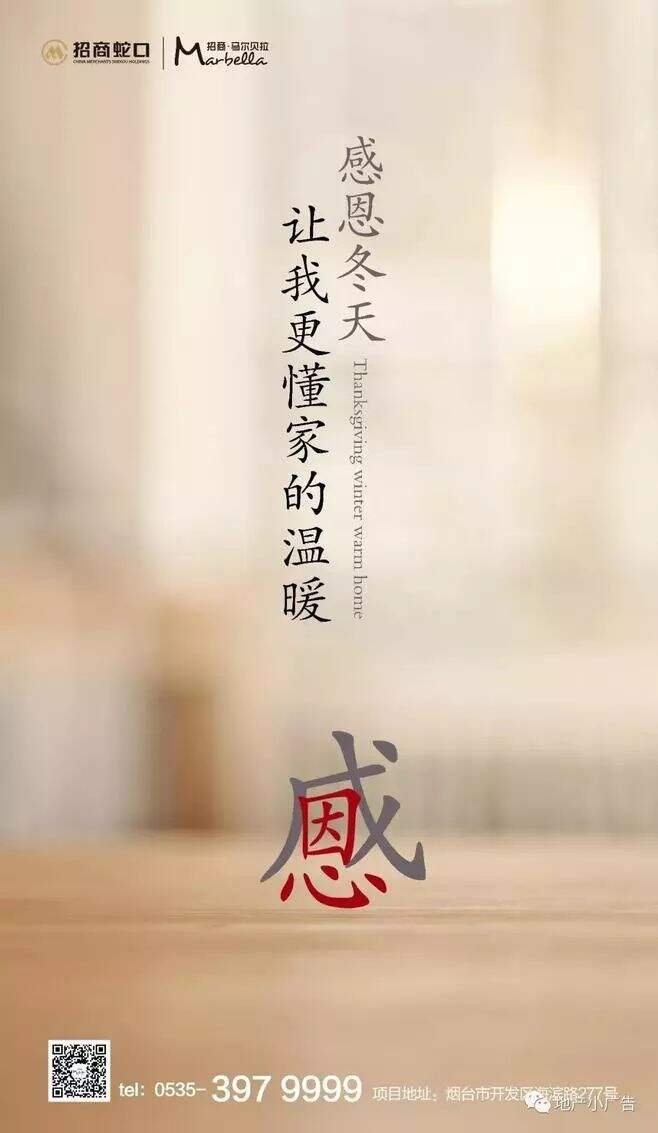 招商蛇口
CHINA MERCHANTS SHEKOU HOLDINGS
招商·马尔贝拉
Marbella
感恩冬天
Thanksgiving winter warm home
让我更懂家的温暖
感恩
tel: 0535- 397 9999
项目地址: 烟台市开发区海滨路277号
地产小广告